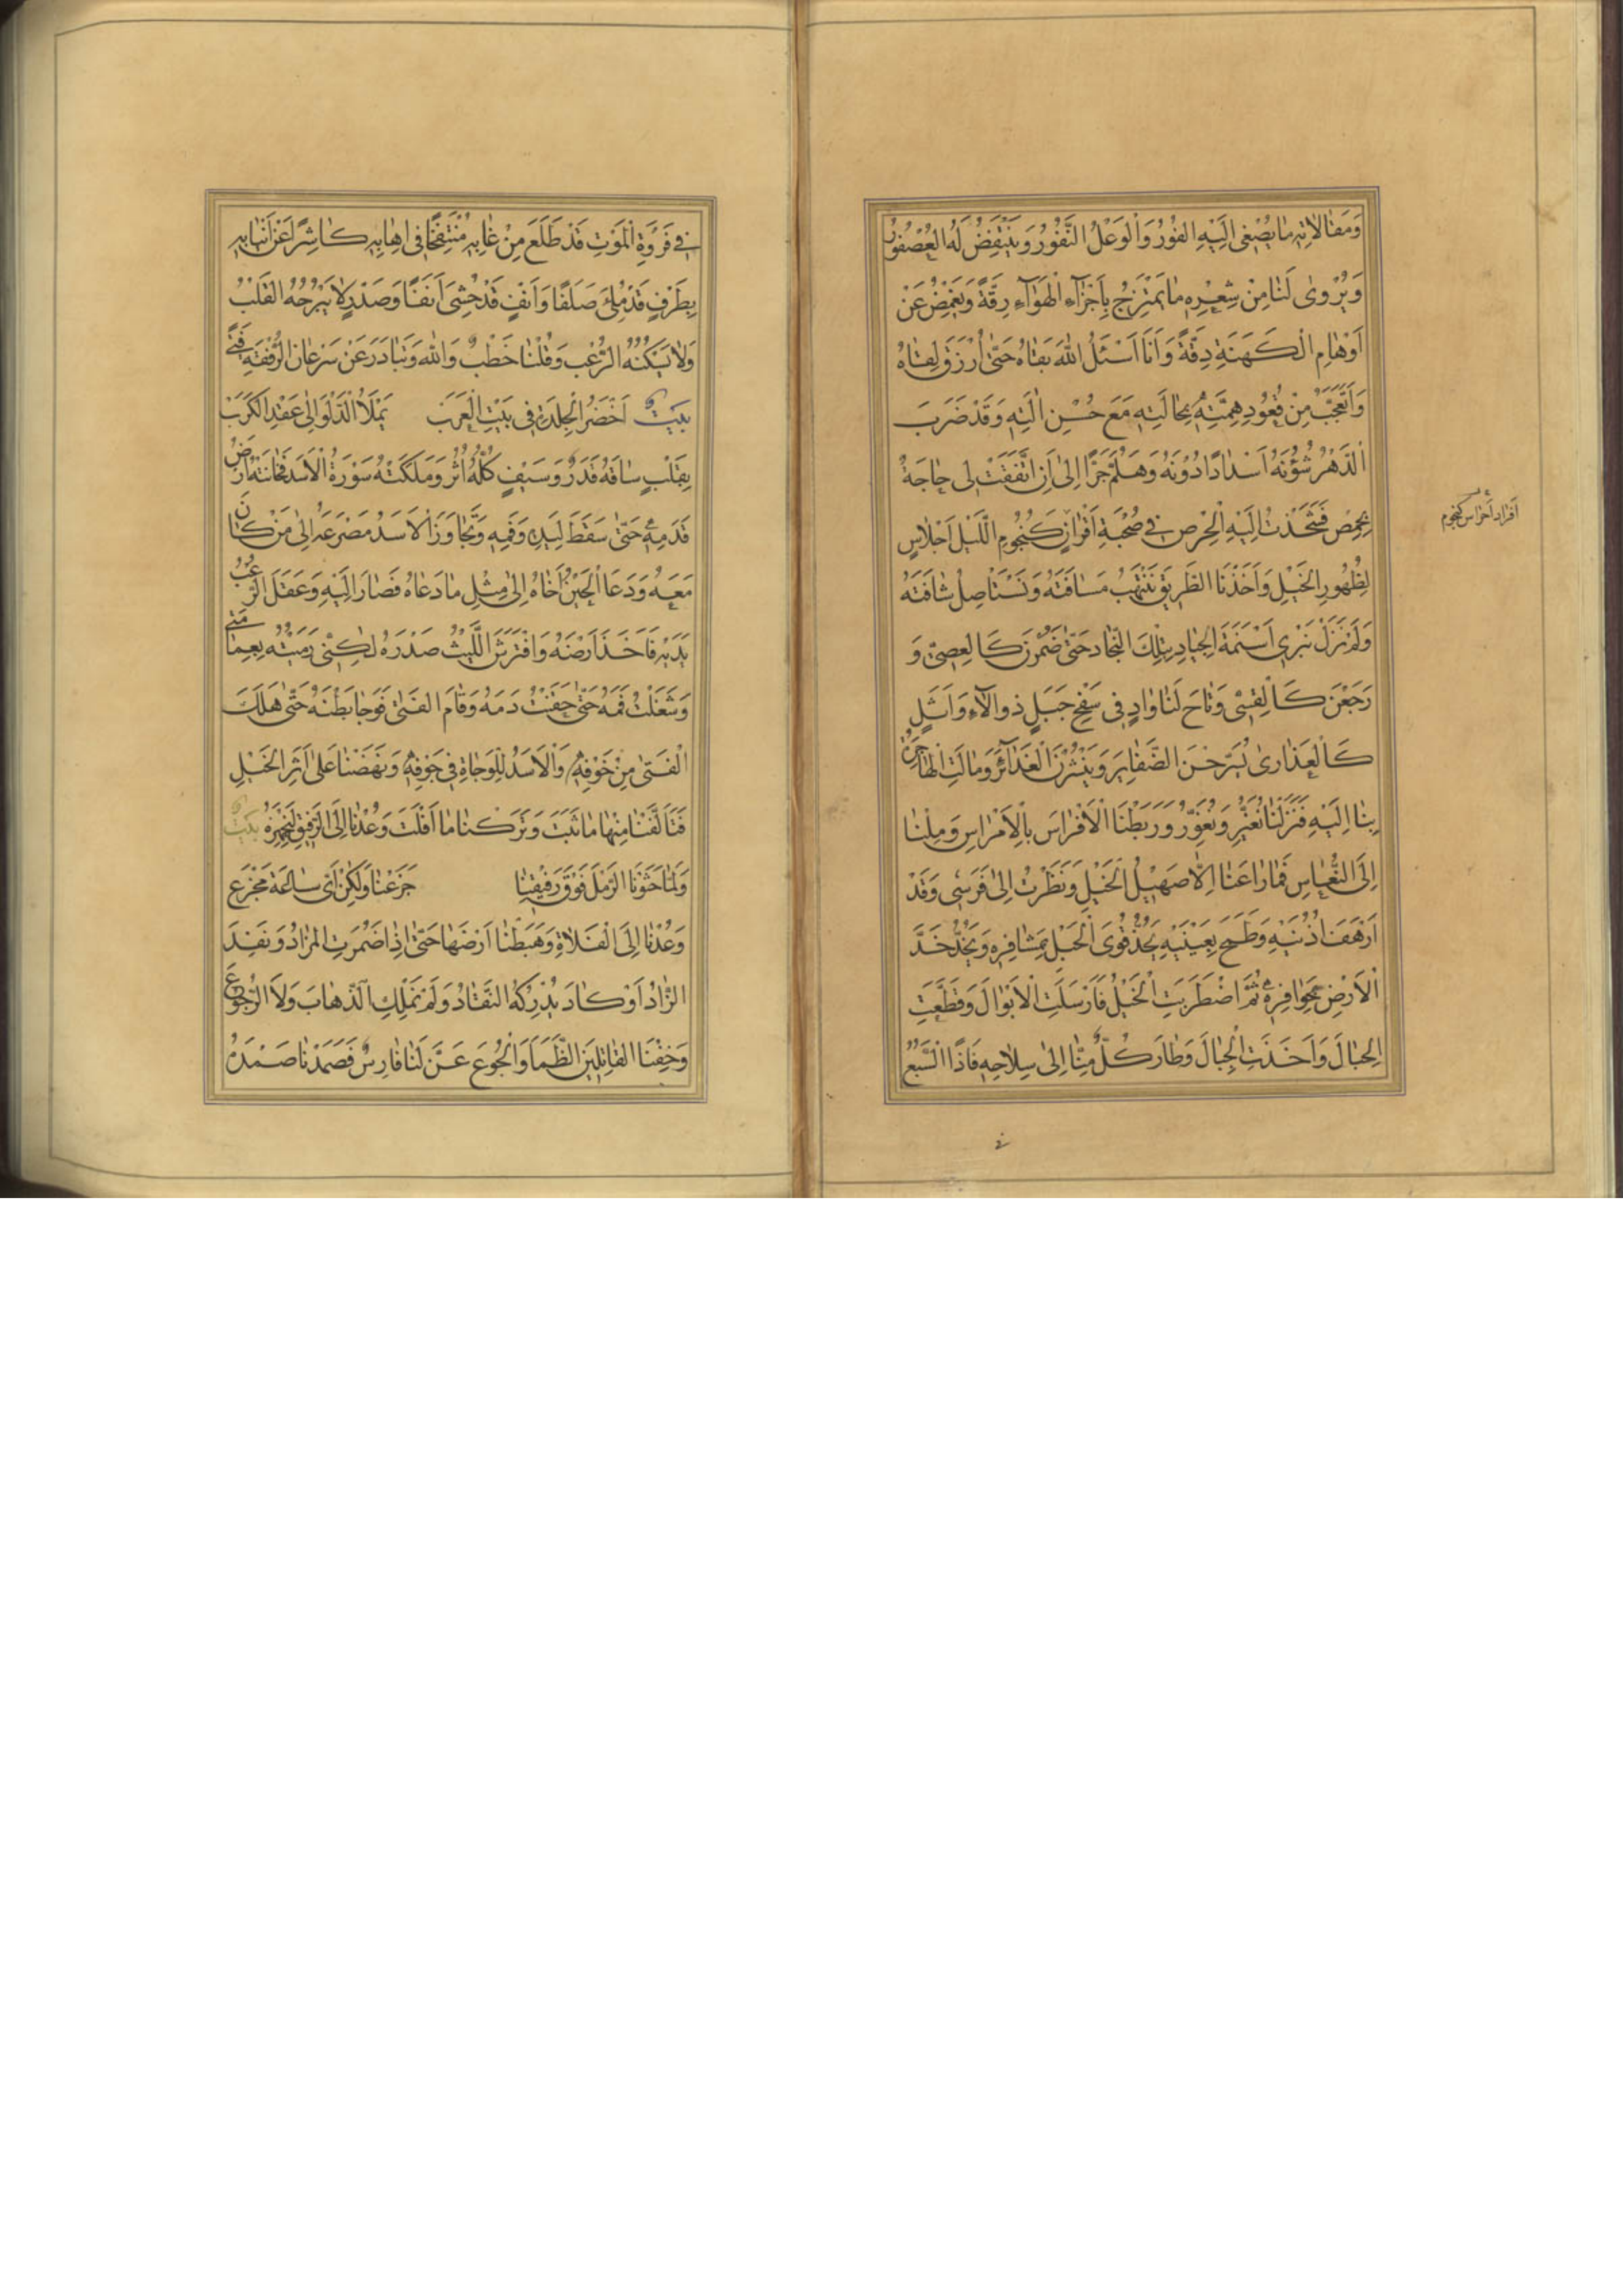 وَمَقَالَاتِهِ مَا يُصْغِى اِلَيْهِ الْفُوْرُ وَالْوَعْلُ النَّفُوْرُ وَيَنْتَفِضُ لَهُ الْعُصْفُوْرُ
وَيُرْوىٰ لَنَا مِنْ شِعْرِهِ مَا يَمْتَزِجُ بِاَجْزَآءِ الْهَوَآءِ رِقَّةً وَيَغْمِضُ عَنْ
اَوْهَامِ الْكَهَنَةِ دِقَّةً وَاَنَا اَسْئَلُ اللهَ بَقَاهُ حَتّىٰ اُرْزَقَ لِقَاهُ
وَاَتَعَجَّبُ مِنْ قُعُودِ هِمَّتِهِ بِحَالَتِهِ مَعَ حُسْنِ اٰلَتِهِ وَقَدْ ضَرَبَ
الدَّهْرُ شُؤُنَهُ اَسْدَادًا دُوْنَهُ وَهَلُمَّ جَرًّا اِلىٰ اَنِ اتَّفَقَتْ لِى حَاجَةٌ
بِحِمْصَ فَشَحَذْتُ اِلَيْهِ الْحِرْصَ فِى صُحْبَةِ اَفْرَانٍ كَنُجُومِ اللَّيْلِ اَحْلَاسٍ
اَفْرَاد اَحْرَاس كنجوم
لِظُهُورِ الْخَيْلِ وَاَخَذْنَا الطَّرِيقَ نَنْتَهِبُ مَسَافَتَهُ وَنَسْتَأصِلُ شَافَتَهُ
وَلَمْ نَزَلْ نَبْرِى اَسْنِمَةَ الْجِيَادِ بِتِلْكَ النِّجَادِ حَتّىٰ ضَمُرْنَ كَالْعِصِىِّ وَ
رَجَعْنَ كَالْقِسِىِّ وَتَاحَ لَنَا وَادٍ فِى سَفْحِ جَبَلٍ ذِو الْآءِ وَاَثَلٍ
كَالْعَذَارىٰ يُسَرِّحْنَ الضَّفَايِرَ وَيَنْشُرْنَ الْغَدَآئِرَ وَمَالَتِ الْهَاجِرَةُ
بِنَا اِلَيْهِ فَنَزَلْنَا نُغَبِّرُ وَنُغَوِّرُ وَرَبَطْنَا الْاَفْرَاسَ بِالْاَمْرَاسِ وَمِلْنَا
اِلَى النُّعَاسِ فَمَا رَاعَنَا اِلَّا صَهِيْلُ الْخَيْلِ وَنَظَرْتُ اِلىٰ فَرَسِى وَقَدْ
اَرْهَفَ اُذُنَيْهِ وَطَمَحَ بِعَيْنَيْهِ يَجُذُّ قُوَى الْحَبْلِ بِمَشَافِرِهِ وَيَخُدُّ خَدَّ
الْاَرْضِ بِحَوَافِرِهِ ثُمَّ اضْطَرَبَتِ الْخَيْلُ فَاَرْسَلَتِ الْاَبْوَالَ وَقَطَّعَتِ
الْحِبَالَ وَاَخَذَتِ الْجِبَالَ وَطَارَ كُلٌّ مِنَّا اِلىٰ سِلَاحِهِ فَاِذَا السَّبُعُ
فى
فِى فَرْوَةِ الْمَوْتِ قَدْ طَلَعَ مِنْ غَابِهِ مُنْتَفِخًا فِى اِهَابِهِ كَاشِرًا عَنْ اَنْيَابِهِ
بِطَرْفٍ قَدْ مُلِئَ صَلَفًا وَاَنْفٍ قَدْ حُشِىَ اَنَفًا وَصَدْرٍ لَا يَبْرَحُهُ الْقَلْبُ
وَلَا يَسْكُنُهُ الرُّعْبُ وَقُلْنَا خَطْبٌ وَاللهِ وَتَبَادَرَ عَنْ سَرْعَانِ الرُّفْقَةِ فَتًى
بَيْت اَخْضَرُ الْجِلْدَةِ فِى بَيْتِ الْعَرَبْ يَمْلَأُ الدَّلْوَ اِلىٰ عَقْدِ الْكَرَبْ
بِقَلْبٍ سَاقَهُ قَدَرٌ وَسَيْفٍ كُلُّهُ اُثُرٌ وَمَلَكَتْهُ سَوْرَةُ الْاَسَدِ فَخَانَتْهُ اَرْضُ
قَدَمِهِ حَتّىٰ سَقَطَ لِيَدِهِ وَفَمِهِ وَتَجَاوَزَ الْاَسَدُ مَصْرَعَهُ اِلىٰ مَنْ كَانَ
مَعَهُ وَدَعَا الْحَيْنُ اَخَاهُ اِلىٰ مِثْلِ مَا دَعَاهُ فَصَارَ اِلَيْهِ وَعَقَلَ الرُّعْبُ
يَدَيْهِ فَاَخَذَ اَرْضَهُ وَافْتَرَشَ اللَّيْثُ صَدْرَهُ لٰكِنِّى رَمَيْتُهُ بِعِمَامَتِى
وَشَغَلْتُ فَمَهُ حَتّىٰ حَقَنْتُ دَمَهُ وَقَامَ الْفَتىٰ فَوَجَا بَطْنَهُ حَتّىٰ هَلَكَ
الْفَتىٰ مِنْ خَوْفِهِ وَالْاَسَدُ لِلْوَجَاةِ فِى جَوْفِهِ وَنَهَضْنَا عَلىٰ اَثَرِ الْخَيْلِ
فَتَاَلَّفْنَا مِنْهَا مَا ثَبَتَ وَتَرَكْنَا مَا اَفْلَتَ وَعُدْنَا اِلَى الرَّفِيقِ لِنُجَهِّزَهُ بَيْت
وَلَمَّا حَثَوْنَا الرَّمْلَ فَوْقَ رَفِيْقِنَا جَزِعْنَا وَلٰكِنْ اَىُّ سَاعَةِ مَجْزَعِ
وَعُدْنَا اِلَى الْفَلَاةِ وَهَبَطْنَا اَرْضَهَا حَتّىٰ اِذَا ضَمُرَتِ الْمَزَادُ وَنَفِدَ
الزَّادُ اَوْ كَادَ يُدْرِكُهُ النَّفَادُ وَلَمْ نَمْلِكِ الذَّهَابَ وَلَا الرُّجُوْعَ
وَخِفْنَا الْقَاتِلَيْنِ الظَّمَا وَالْجُوعَ عَنَّ لَنَا فَارِسٌ فَصَمَدْنَا صَمْدَهُ